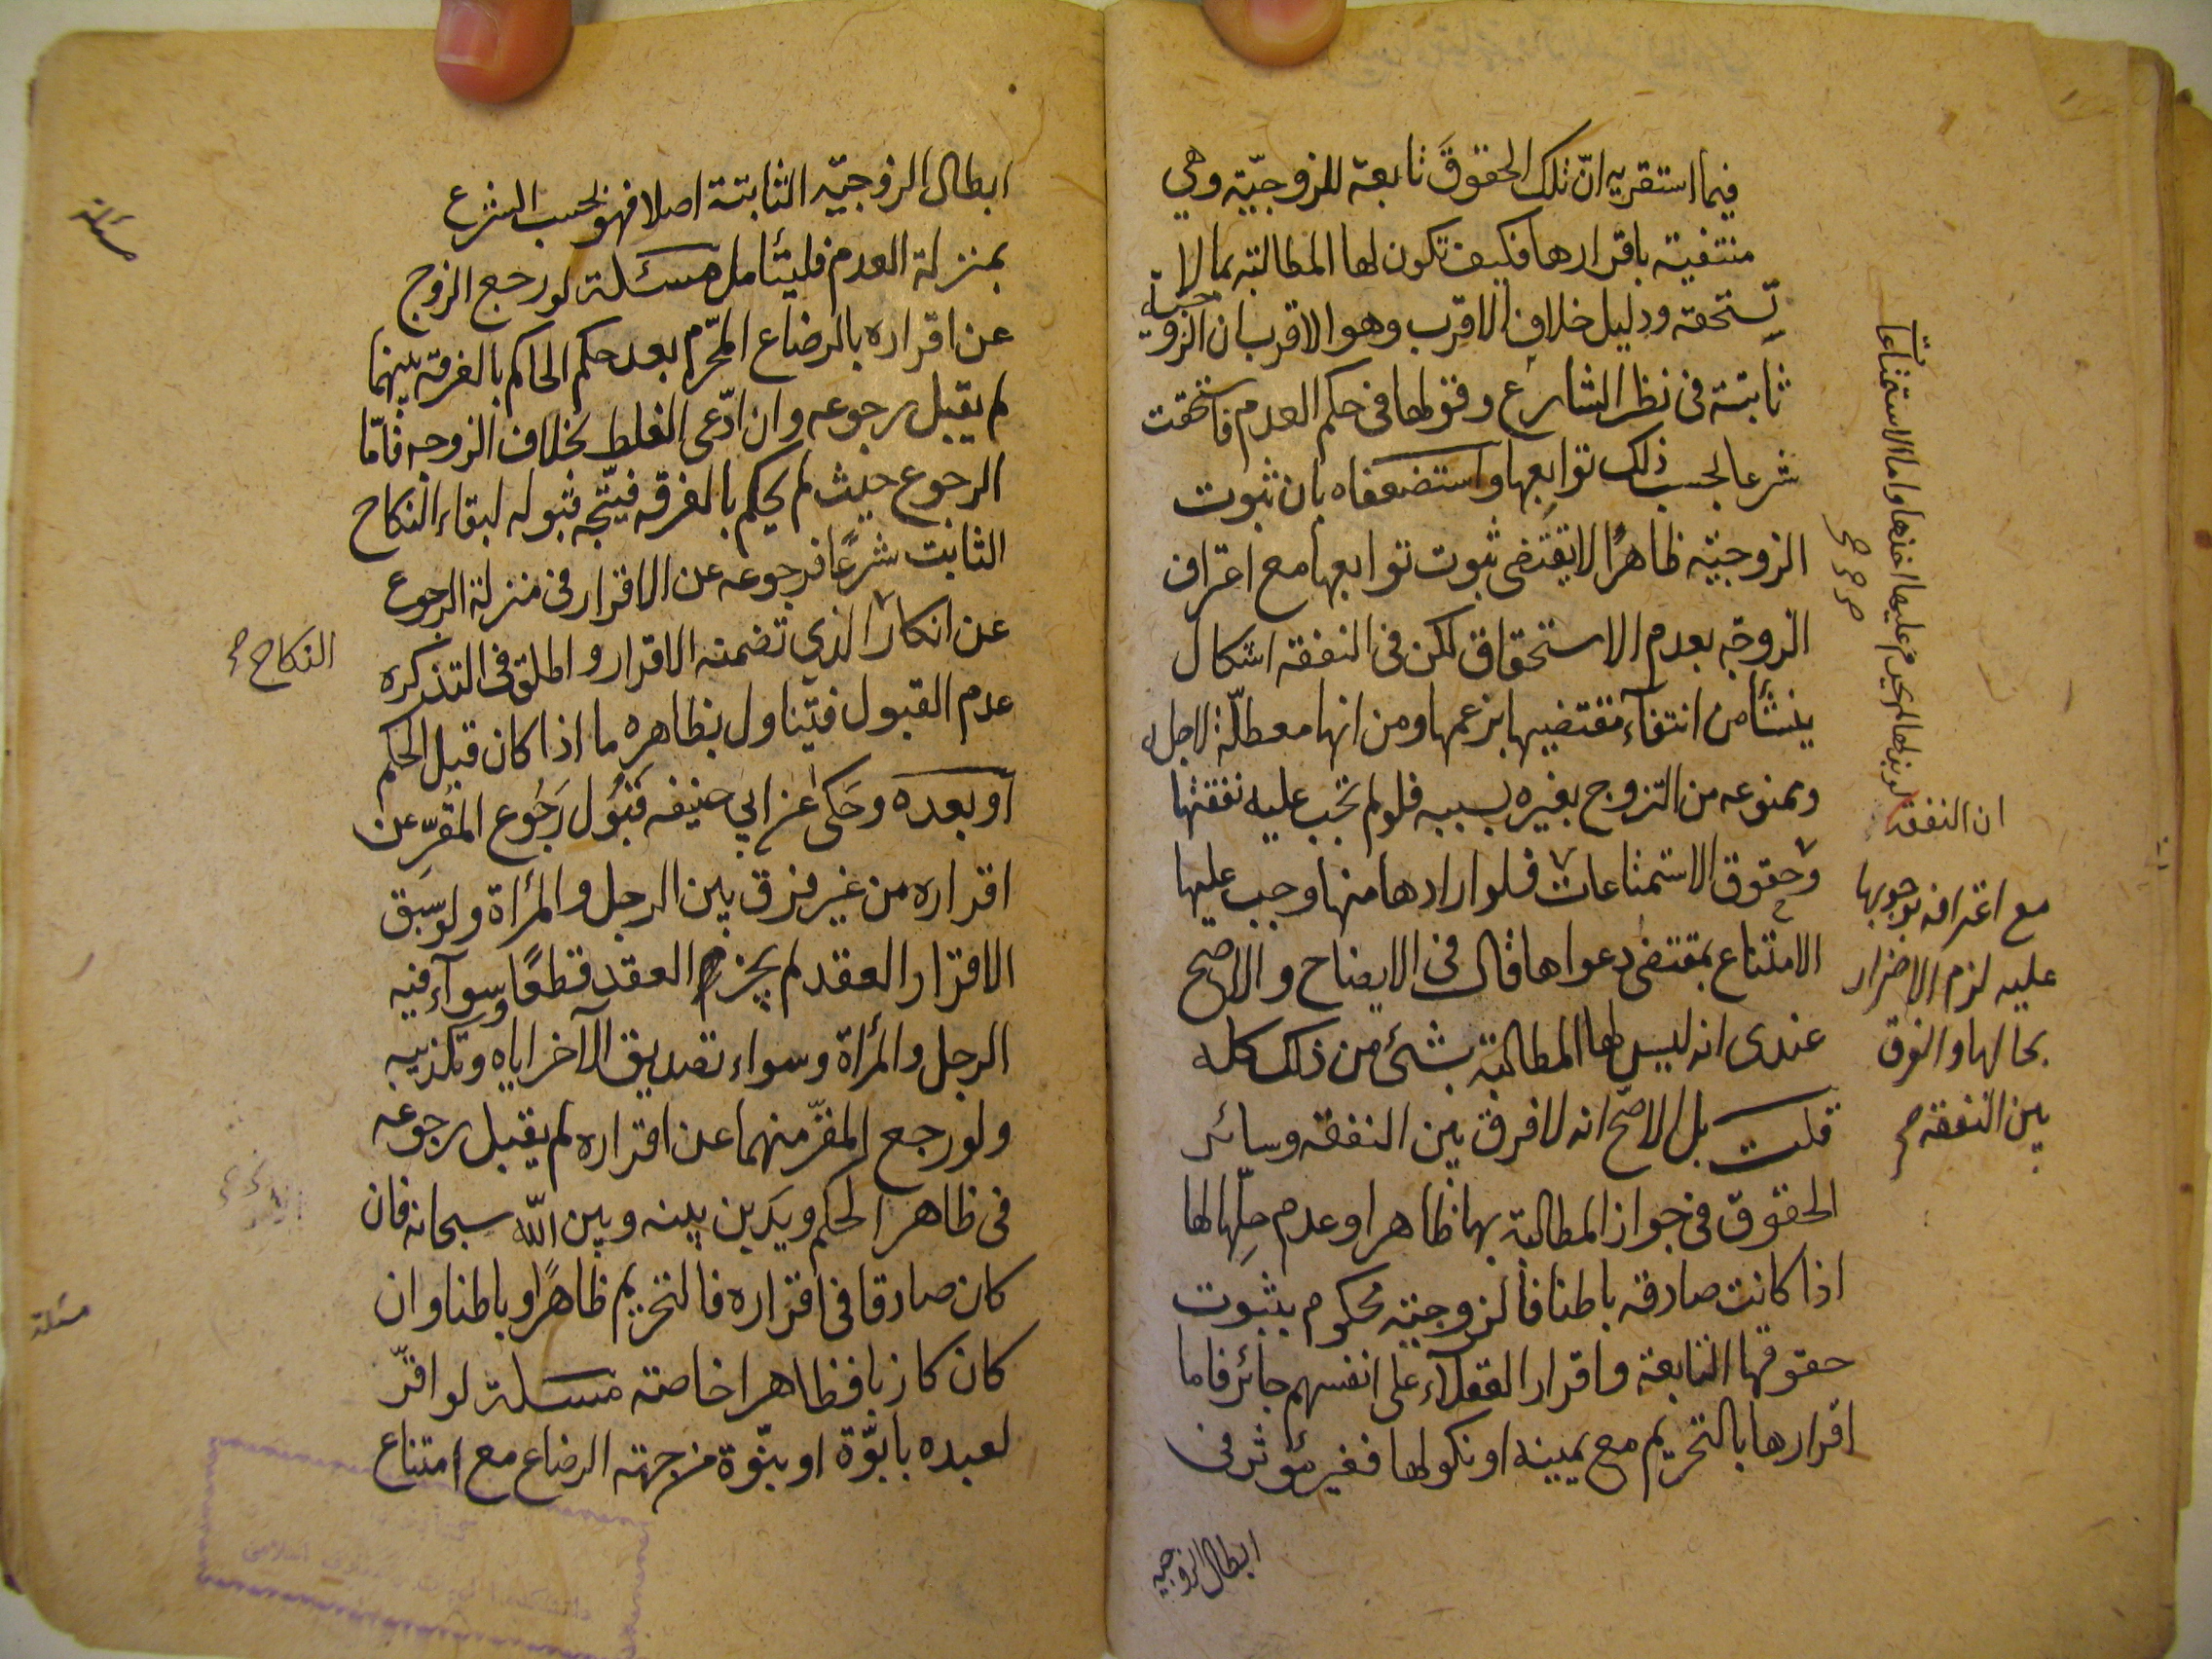 فيما استقر به انّ تلك الحقوقَ تابعة للزوجيّة وهي
منتفية باقرارها فكيف تكون لها المطالبة بما لا
تستحقه ودليل خلاف الاقرب وهو الاقرب ان الزوجية
ثابتة فى نظر الشارع وقولها فى حكم العدم فاستحقت
شرعا بحسب ذلك توابعها واستضعفاه بان ثبوت
الزوجيّة ظاهرًا لا يقتضى ثبوت توابعها مع اعتراف
الزوجة بعدم الاستحقاق لكن فى النفقة اشكال
ينشأ من انتفآء مقتضيها بزعمها ومن انها معطلّة لاجله
وممنوعه من التزوج بغيره بسببه فلو لم تجب عليه نفقتها
وحقوق الاستمتاعات فلو ارادها منها وجب عليها
الامتناع بمقتضى دعواها قال فى الايضاح والاصح
عندى انه ليس لها المطالبة بشئ من ذلك كله
قلت بل الاصحّ انه لا فرق بين النفقة وسائر
الحقوق فى جواز المطالبة بها ظاهرا وعدم حلّها لها
اذا كانت صادقه باطنا فالزوجيّة محكوم بثبوت
حقوقها التابعة واقرار العقلآء على انفسهم جائز فاما
اقرارها بالتحريم مع يمينه او نكولها فغير مؤثر فى
ابطال الزوجية
لو بذلها لم يحرم عليها اخذها واما الاستمتاعات
ان النفقة
مع اعترافه بوجوبها
عليه لزم الاضرار
بحالها والفرق
بين النفقة
ابطال الزوجيّه الثابتة اصلا فهو بحسب الشرع
بمنزلة العدم فليتأمل مسئلة لو رجع الزوج
عن اقراره بالرضاع المحّرم بعد حكم الحاكم بالفرقة بينهما
لم يقبل رجوعه وان ادّعى الغلط بخلاف الزوجه فامّا
الرجوع حيث لم يحكم بالفرقه فيتّجه قبوله لبقاء النكاح
الثابت شرعًا فرجوعه عن الاقرار فى منزلة الرجوع
عن انكار الذي تضمنه الاقرار واطلق فى التذكره
عدم القبول فيتناول بظاهره ما اذا كان قبل الحكم
او بعده وحَكى عَن ابي حنيفه قبُول رَجُوع المقرّ عن
اقراره من غير فرق بين الرجل والمرأة ولو سبق
الاقرار العقد لم يجز العقد قطعًا وسوآء فيه
الرجل والمرأة وسواء تصديق الآخر اياه وتكذيبه
ولو رجع المقرّ منهما عن اقراره لم يقبل رجوعه
فى ظاهر الحكم ويَدين بينه وبين الله سبحانه فان
كان صادقا فى اقراره فالتحريم ظاهرًا وباطنا وان
كان كاذبا فظاهرا خاصة مسئلة لو اقرّ
لعبده بابوّة او بنوّة من جهة الرضاع مع امتناع
مسئلة
النكاح
مسئلة